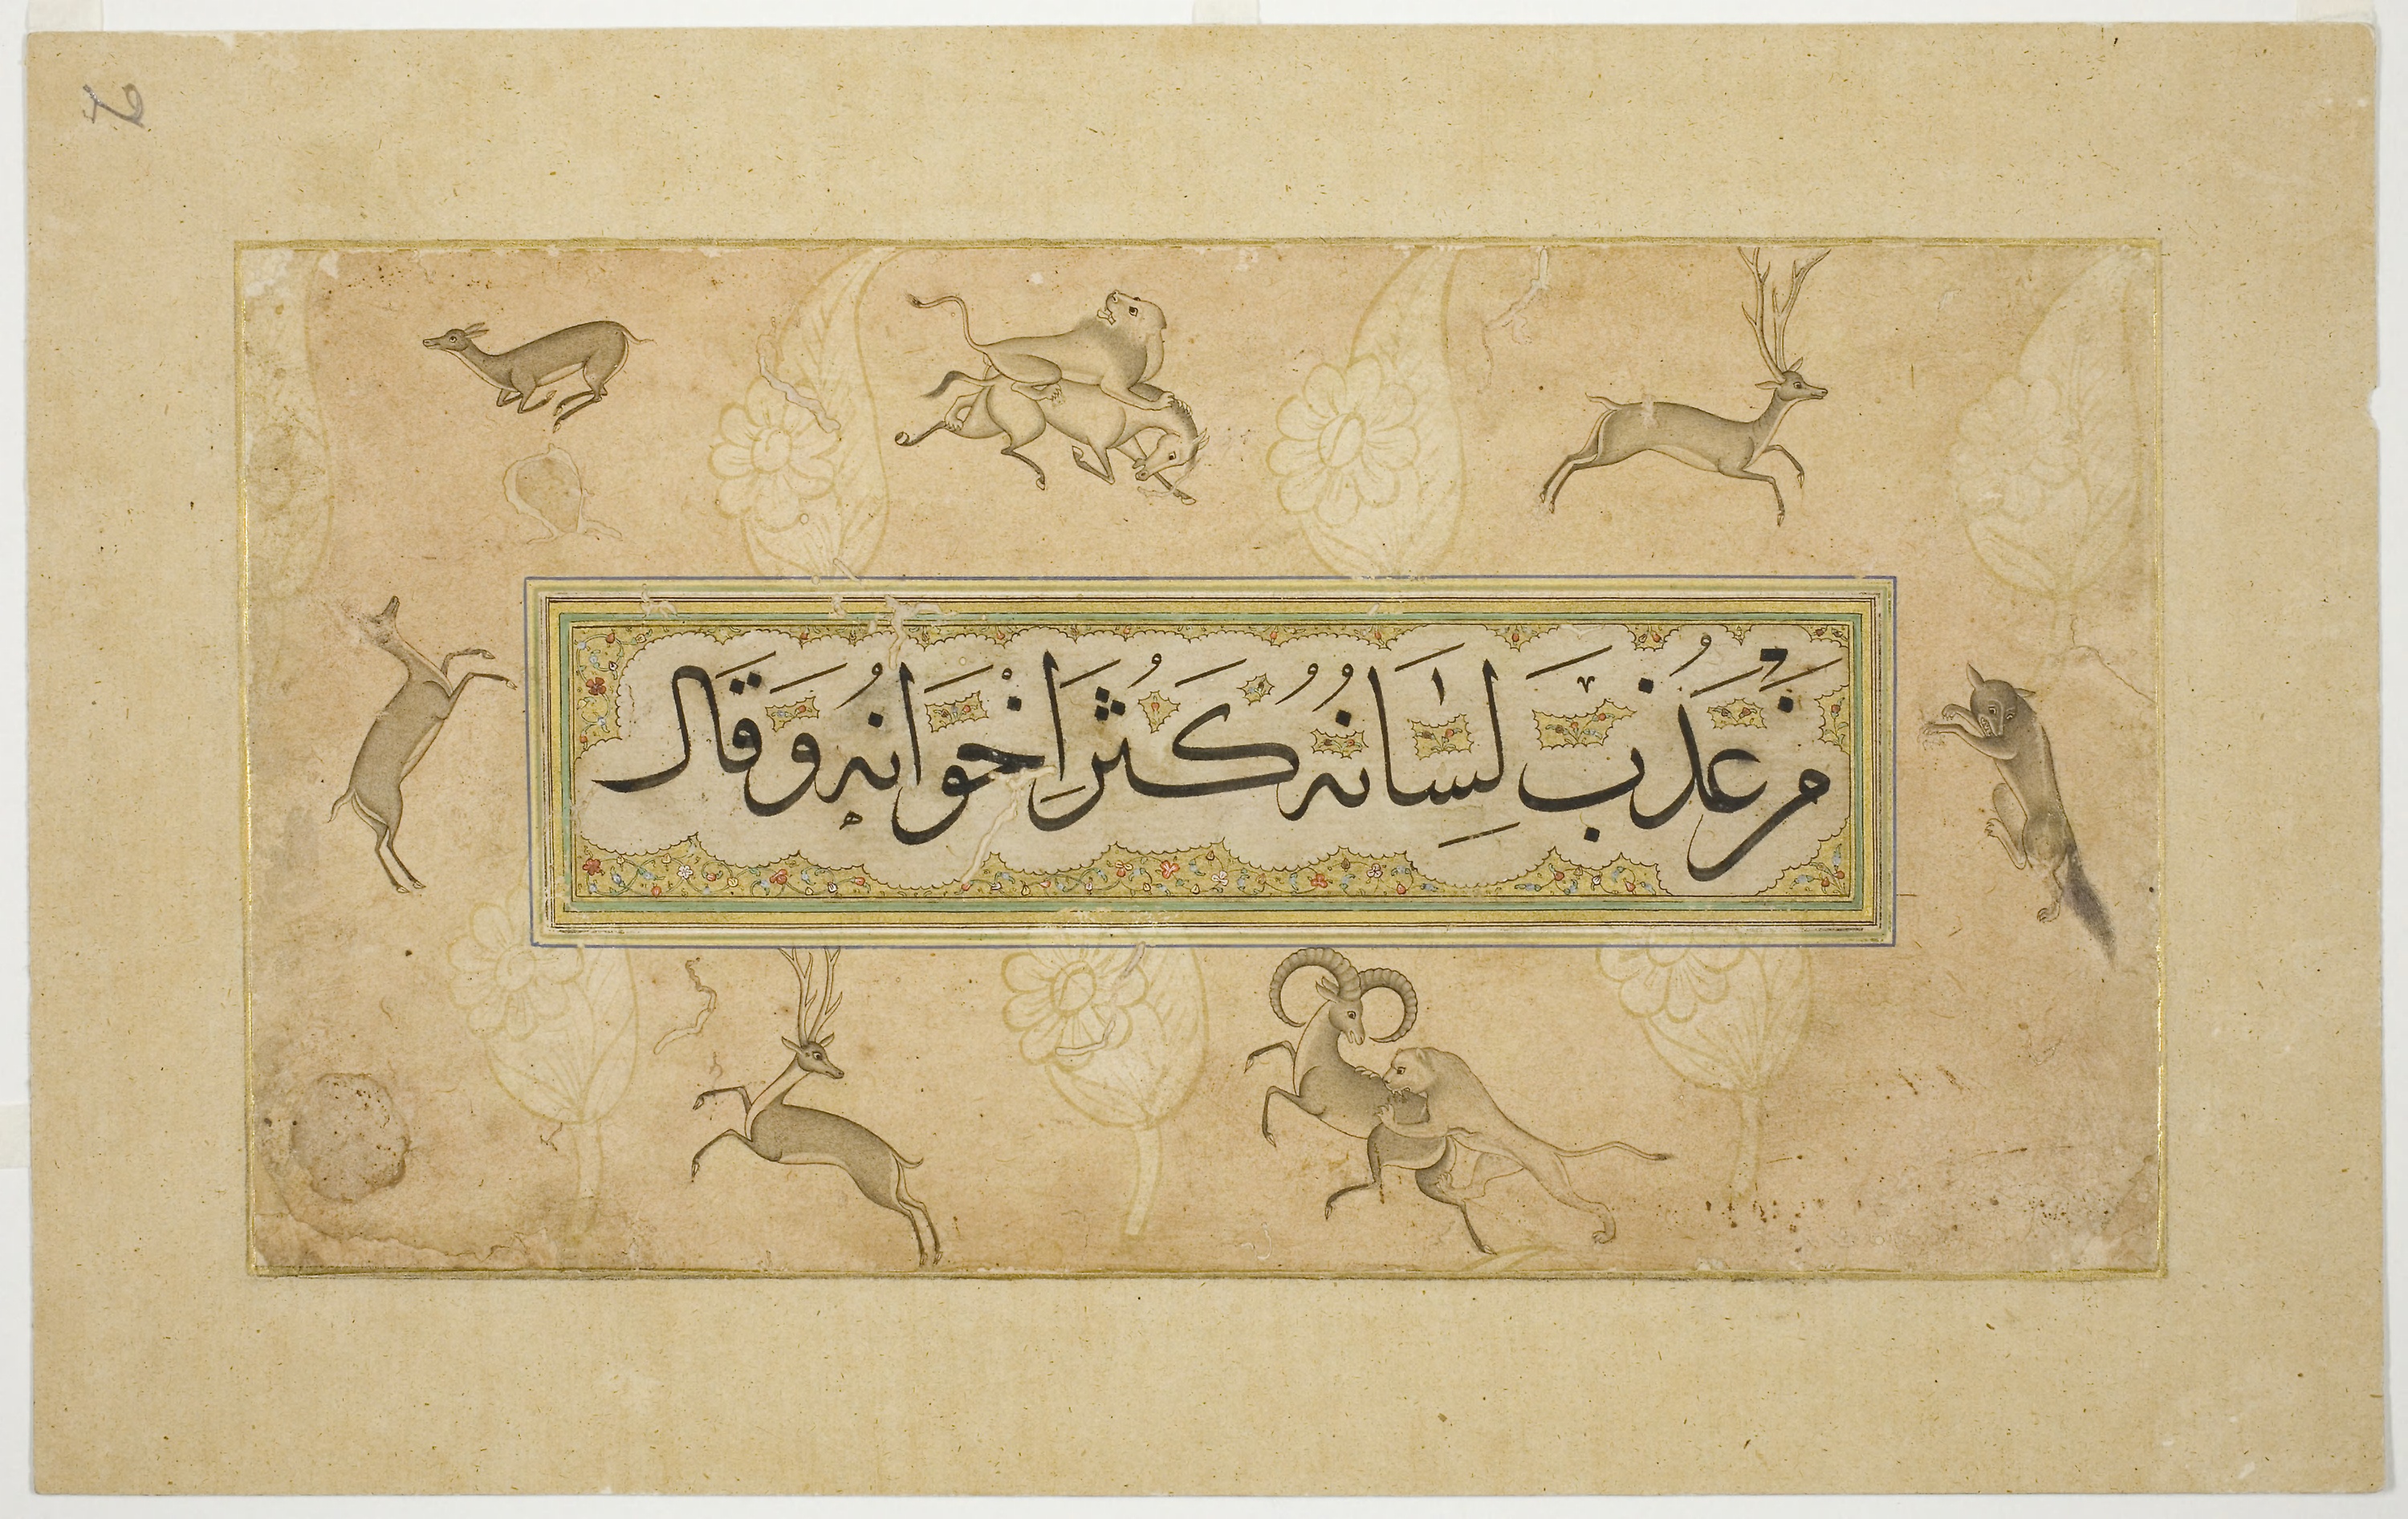 مَنْ عَذُبَ لِسَانُهُ كَثُرَ اِخْوَانُهُ وَقَالَ